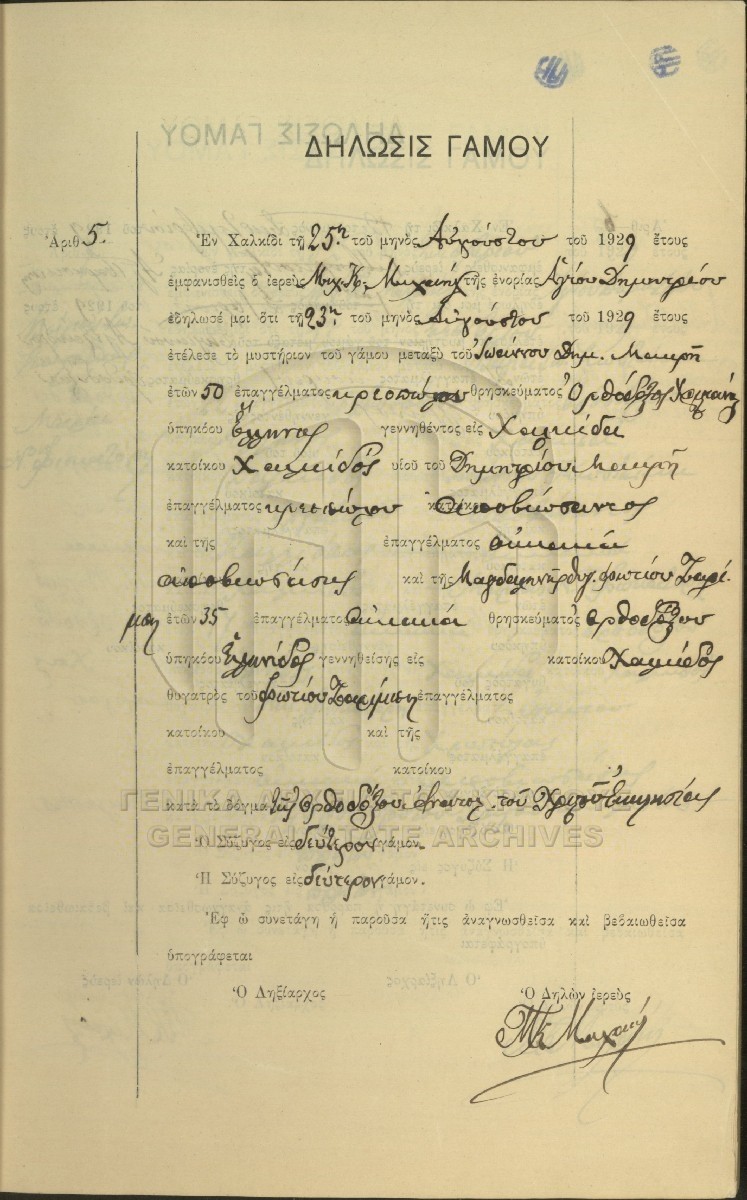 ΔΗΛΩΣΙΣ ΓΑΜΟΥ
Ἀριθ 5.
Ἐν Χαλκίδι τῇ 25ῃ τοῦ μηνὸς Αὐγούστου τοῦ 1929 ἔτους
ἐμφανισθεὶς ὁ ἱερεὺς Μιχ. Κ. Μιχαὴλ τῆς ἐνορίας Ἁγίου Δημητρίου
ἐδήλωσέ μοι ὅτι τῇ 23ῃ τοῦ μηνὸς Αὐγούστου τοῦ 1929 ἔτους
ἐτέλεσε τὸ μυστήριον τοῦ γάμου μεταξὺ τοῦ Ἰωάννου Δημ. Μακρῆ
ἐτῶν 50 ἐπαγγέλματος κρεοπώλου θρησκεύματος Ὀρθόδοξος
ὑπηκόου Ἕλληνας γεννηθέντος εἰς Χαλκίδα
κατοίκου Χαλκίδος υἱοῦ τοῦ Δημητρίου Μακρῆ
ἐπαγγέλματος κρεοπώλου κατοίκου ἀποβιώσαντος
καὶ τῆς ἐπαγγέλματος οἰκιακά
ἀποβιωσάσης καὶ τῆς Μαγδαληνῆς θυγ. Φωτίου
ἐτῶν 35 ἐπαγγέλματος οἰκιακά θρησκεύματος ὀρθοδόξου
ὑπηκόου Ἑλληνίδος γεννηθείσης εἰς κατοίκου Χαλκίδος
θυγατρὸς τοῦ Φωτίου ἐπαγγέλματος
κατοίκου καὶ τῆς
ἐπαγγέλματος κατοίκου
κατὰ τὸ δόγμα τῆς ὀρθοδόξου Ἀνατολ. τοῦ Χριστοῦ Ἐκκλησίας
ΓΕΝΙΚΑ ΑΡΧΕΙΑ ΤΟΥ ΚΡΑΤΟΥΣ
GENERAL STATE ARCHIVES
Ὁ Σύζυγος εἰς δεύτερον γάμον.
Ἡ Σύζυγος εἰς δεύτερον γάμον.
Ἐφ ᾧ συνετάγη ἡ παροῦσα ἥτις ἀναγνωσθεῖσα καὶ βεβαιωθεῖσα
ὑπογράφεται
Ὁ Ληξίαρχος Ὁ Δηλῶν ἱερεὺς